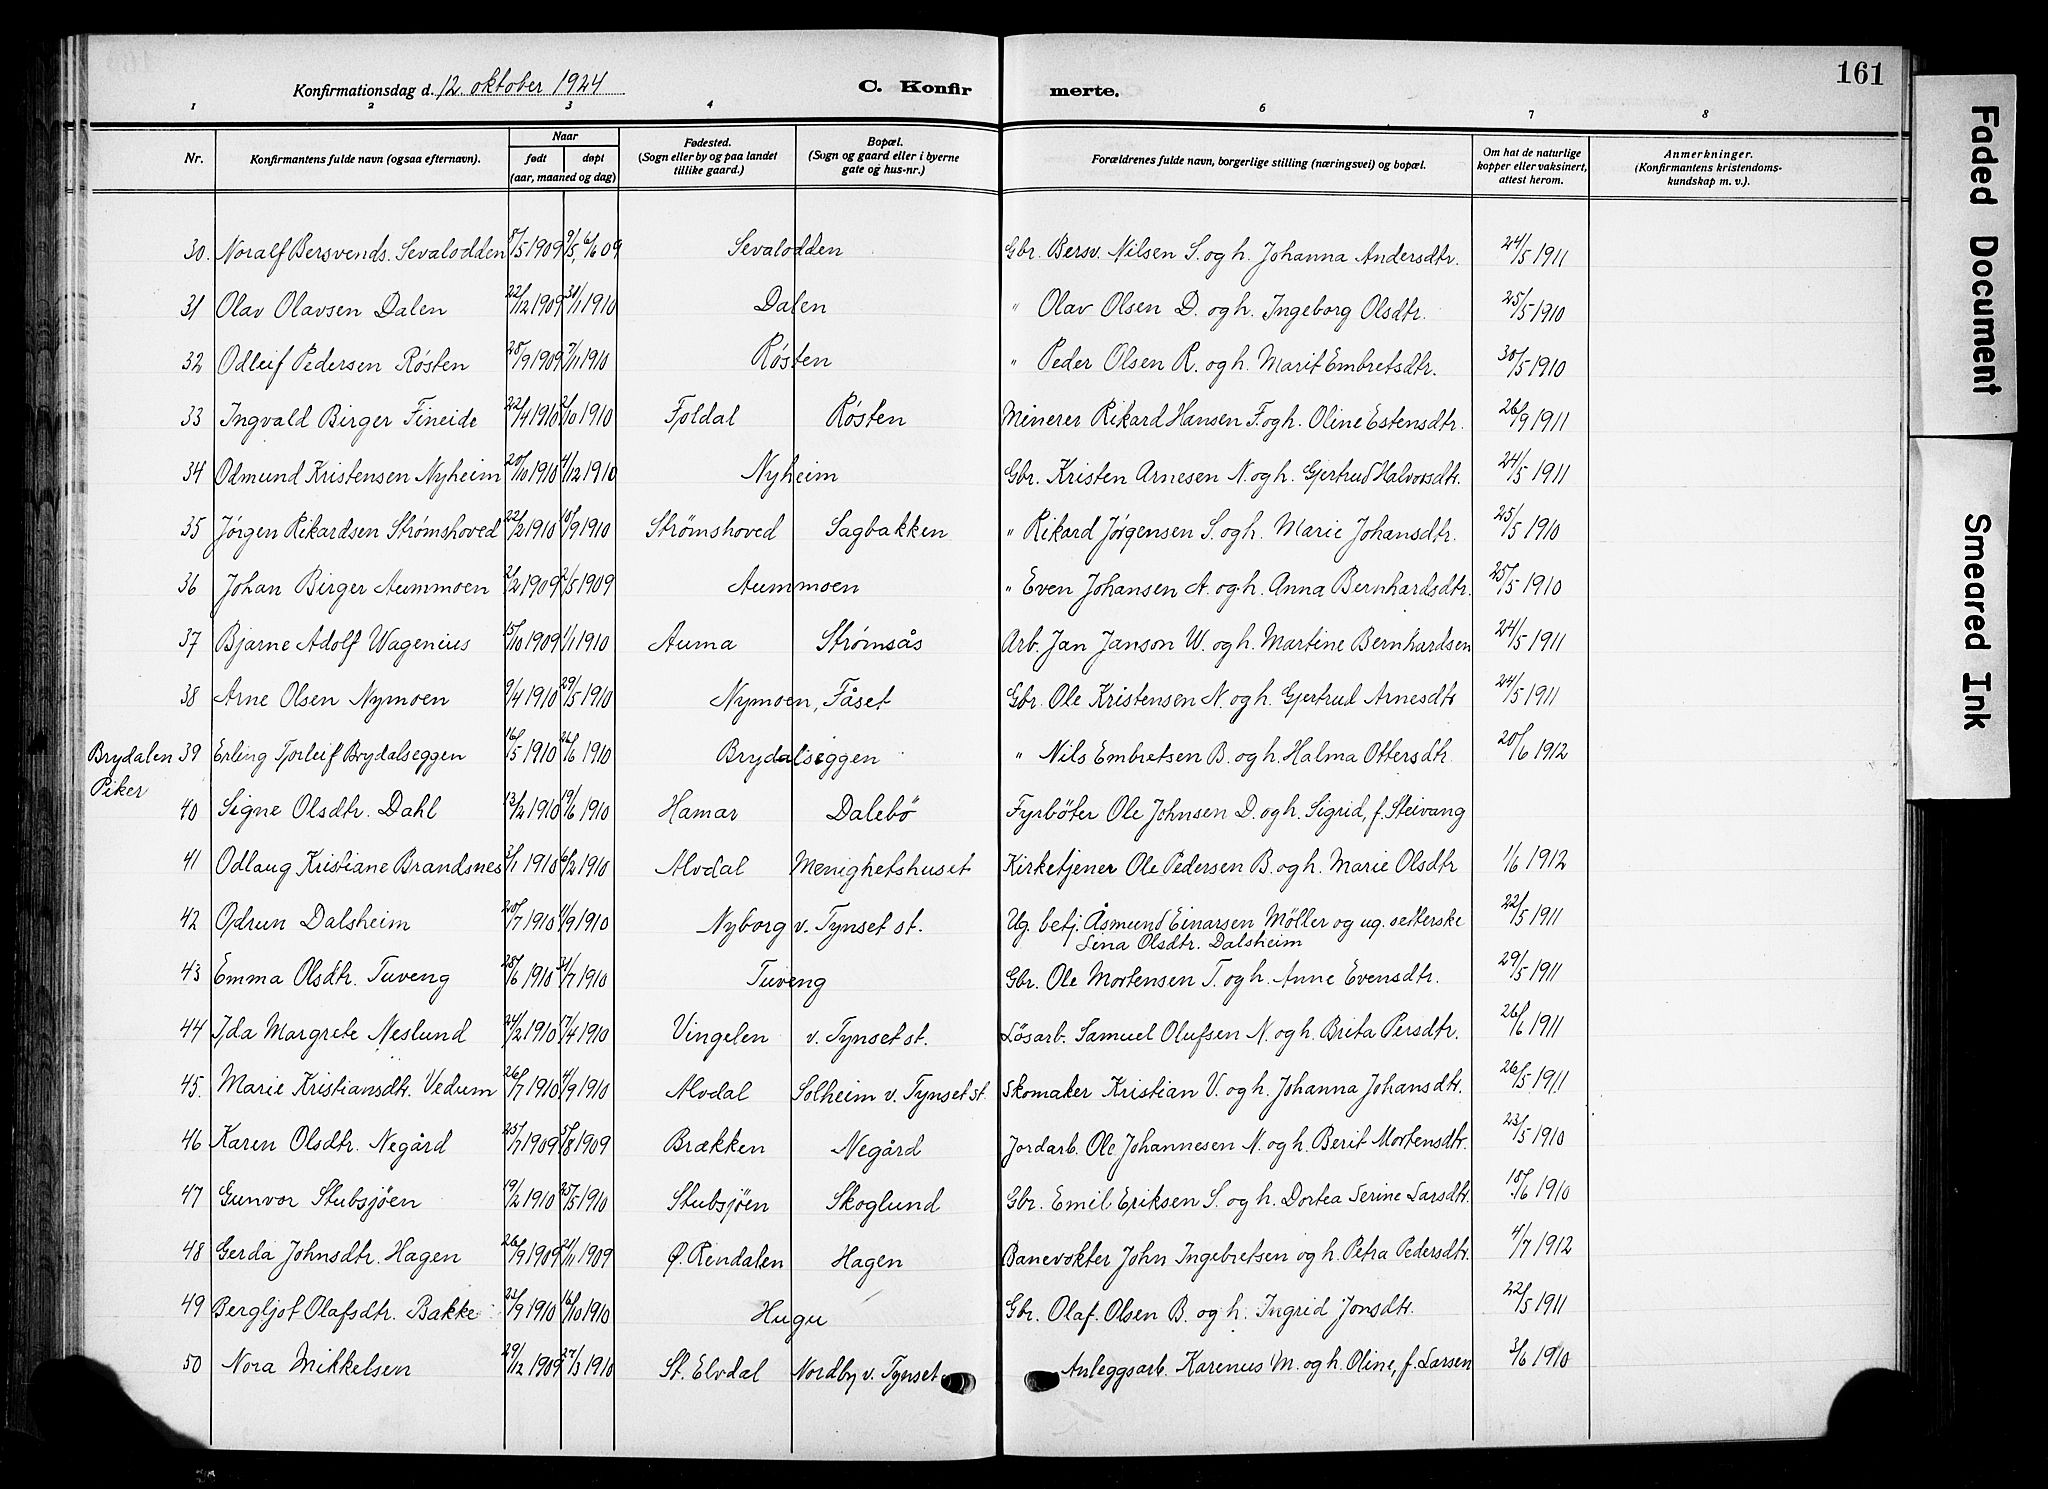 161
Konfirmationsdag d. 12. oktober 1924 C. Konfir merte.
1 2 3 4 5 6 7 8
Nr. Konfirmantens fulde navn (ogsaa efternavn). Naar født døpt (aar, maaned og dag) Fødested. (Sogn eller by og paa landet tillike gaard.) Bopæl. (Sogn og gaard eller i byerne gate og hus-nr.) Forældrenes fulde navn, borgerlige stilling (næringsvei) og bopæl. Om hat de naturlige kopper eller vaksinert, attest herom. Anmerkninger. (Konfirmantens kristendoms-kundskap m. v.).
30. Noralf Bersvends. Sevalodden 5/5 1909 9/5, 6/6 09 Sevalodden Gbr. Bersv. Nilsen S. og h. Johanna Andersdtr. 24/5 1911
31 Olav Olavsen Dalen 22/12 1909 31/1 1910 Dalen " Olav Olsen D. og h. Ingeborg Olsdtr. 25/5 1910
32 Odleif Pedersen Røsten 28/9 1909 7/11 1910 Røsten " Peder Olsen R. og h. Marit Embretsdtr. 30/5 1910
33 Ingvald Birger Fineide 22/4 1910 2/10 1910 Foldal Røsten Minerer Rikard Hansen F. og h. Oline Estensdtr. 26/9 1911
34 Odmund Kristensen Nyheim 20/10 1910 4/12 1910 Nyheim Gbr. Kristen Arnesen N. og h. Gjertrud Halvorsdtr. 24/5 1911
35 Jørgen Rikardsen Strømshoved 22/2 1910 18/9 1910 Strømshoved Sagbakken " Rikard Jørgensen S. og h. Marie Johansdtr. 25/5 1910
36 Johan Birger Aummoen 2/2 1909 2/5 1909 Aummoen " Even Johansen A. og h. Anna Bernhardsdtr. 25/5 1910
37 Bjarne Adolf Wagenius 15/10 1909 1/1 1910 Auma Strømsås Arb. Jan Janson W. og h. Martine Bernhardsen 24/5 1911
38 Arne Olsen Nymoen 9/4 1910 29/5 1910 Nymoen, Fåset Gbr. Ole Kristensen N. og h. Gjertrud Arnesdtr 24/5 1911
Brydalen 39 Erling Torleif Brydalseggen 16/5 1910 26/6 1910 Brydalseggen " Nils Embretsen B. og h. Halma Ottersdtr. 20/6 1912
Piker
40 Signe Olsdtr. Dahl 13/2 1910 19/6 1910 Hamar Dalebö Fyrböter Ole Johnsen D. og h. Sigrid, f. Steivang
41 Odlaug Kristiane Brandsnes 3/1 1910 6/2 1910 Alvdal Menighetshuset Kirketjener Ole Pedersen B. og h. Marie Olsdtr 1/6 1912
42 Odrun Dalsheim 20/7 1910 11/9 1910 Nyborg v. Tynset st. Ug. betj. Åsmund Einarsen Møller og ug. setterske 22/5 1911
Lina Olsdtr. Dalsheim
43 Emma Olsdtr. Tuveng 28/6 1910 31/7 1910 Tuveng Gbr. Ole Mortensen T. og h. Anne Evensdtr. 29/5 1911
44 Ida Margrete Neslund 24/2 1910 17/4 1910 Vingelen v. Tynset st. Løsarb. Samuel Olufsen N. og h. Brita Persdtr. 26/6 1911
45. Marie Kristiansdtr. Vedum 26/7 1910 4/9 1910 Alvdal Solheim v. Tynset st. Skomaker Kristian V. og h. Johanna Johansdtr. 26/5 1911
46 Karen Olsdtr. Negård 25/7 1909 5/8 1909 Brækken Negård Jordarb. Ole Johannesen N. og h. Berit Mortensdtr. 23/5 1910
47 Gunvor Stubsjöen 19/2 1910 25/5 1910 Stubsjöen Skoglund Gbr. Emil Eriksen S. og h. Dortea Serine Larsdtr. 18/6 1910
48 Gerda Johnsdtr. Hagen 26/9 1909 21/11 1909 Ø. Rendalen Hagen Banevokter John Ingebretsen og h. Petra Pedersdtr. 4/7 1912
49 Bergljot Olafsdtr. Bakke 23/9 1910 16/10 1910 Hugu Gbr. Olaf Olsen B. og h. Ingrid Jonsdtr. 22/5 1911
50 Nora Mikkelsen 29/12 1909 27/3 1910 St. Elvdal Nordby v. Tynset Anleggsarb. Karenus M. og h. Oline, f. Larsen 3/6 1910
Faded Document
Smeared Ink